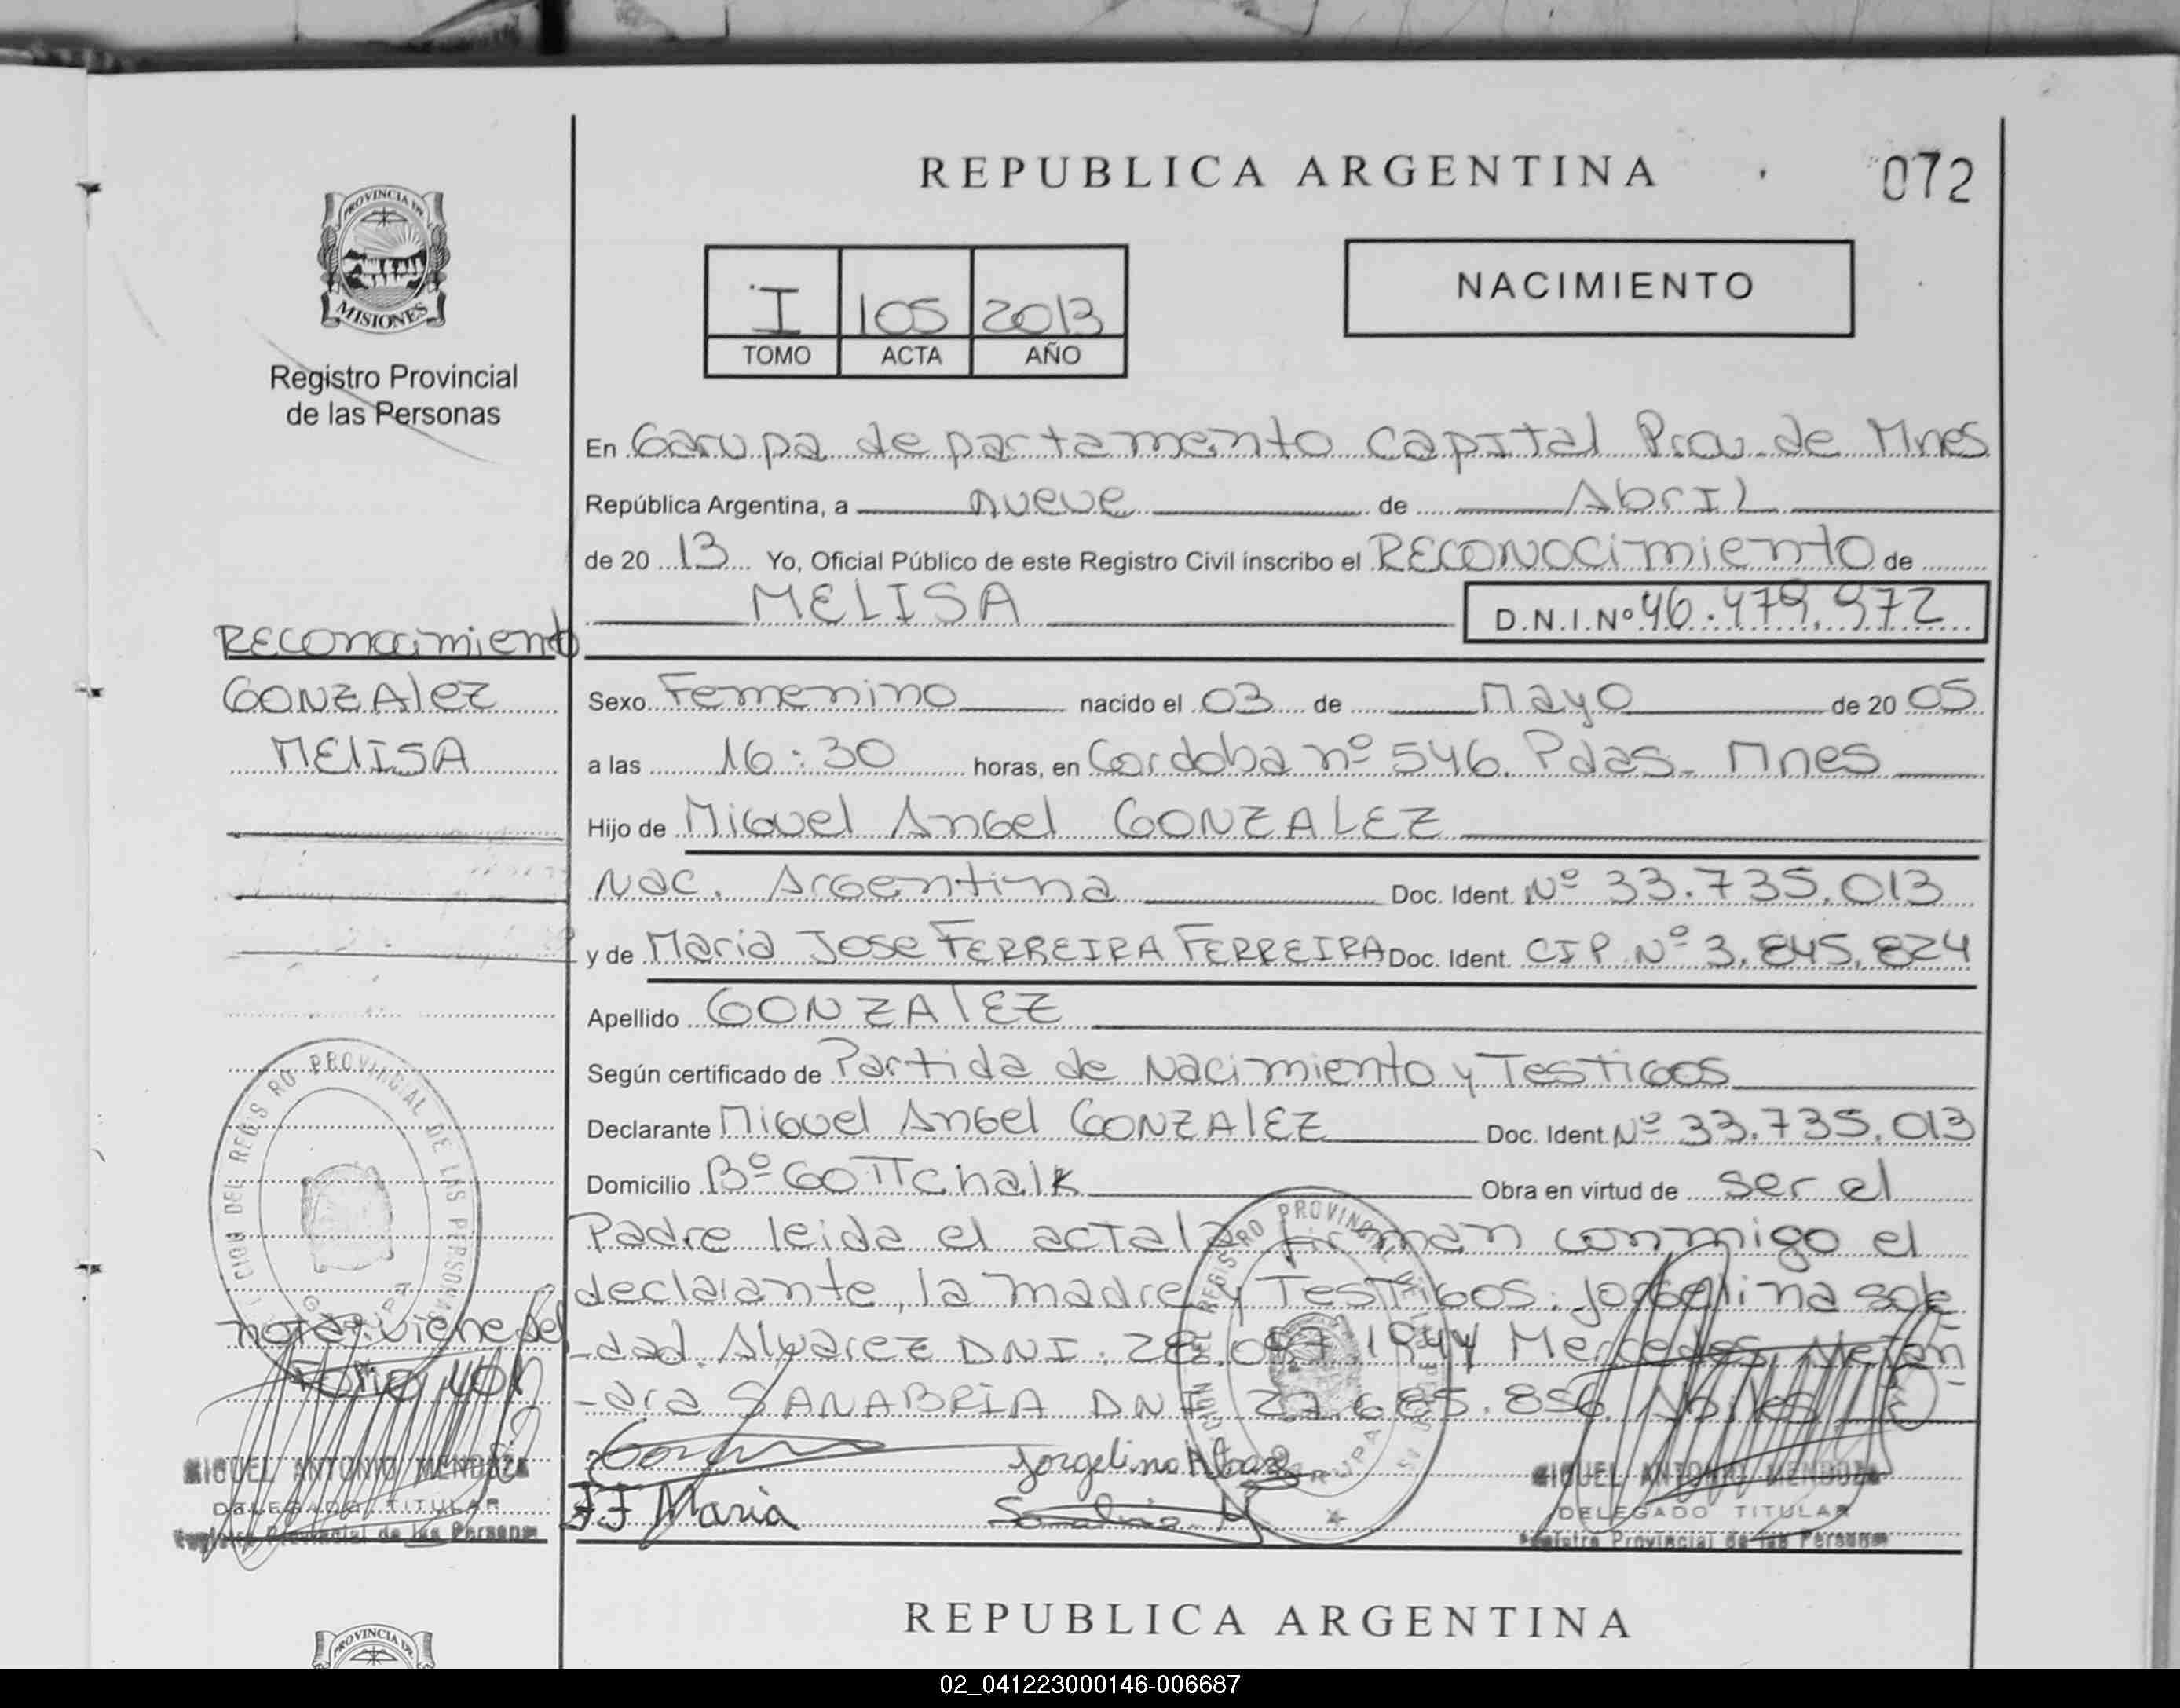 REPUBLICA ARGENTINA
072
PROVINCIA DE
MISIONES
Registro Provincial
de las Personas
NACIMIENTO
I 105 2013
TOMO ACTA AÑO
En Garupa departamento Capital Prov. de Mnes
República Argentina, a nueve de Abril
de 20 13 Yo, Oficial Público de este Registro Civil inscribo el RECONOCimiento de
MELISA D.N.I.Nº 46.479.972
Reconocimiento
GONZAlez
MELISA
Sexo Femenino nacido el 03 de Mayo de 20 05
a las 16:30 horas, en Cordoba nº 546. Pdas. Mnes
Hijo de Miguel Angel GONZALEZ
Nac. Argentina Doc. Ident. Nº 33.735.013
y de Maria Jose FERREIRA FERREIRA Doc. Ident. CIP Nº 3.845.824
Apellido GONZAlEZ
Según certificado de Partida de Nacimiento y Testigos
Declarante Miguel Angel GONZAlEZ Doc. Ident. Nº 33.735.013
Domicilio Bº GOTTchalk Obra en virtud de ser el
Padre leida el acta la firman conmigo el
declarante, la madre y Testigos: Jorgelina sole
-dad Alvarez DNI. 28. Mercedes
-dra SANABRIA DNI 27.685.856
nota: viene del
Tomo
Jorgelina
JJ Maria
MIGUEL ANTONIO MENDOZA
DELEGADO TITULAR
Registro Provincial de las Personas
MIGUEL ANTONIO MENDOZA
DELEGADO TITULAR
Registro Provincial de las Personas
REGISTRO PROVINCIAL DE LAS PERSONAS
GARUPA
REPUBLICA ARGENTINA
PROVINCIA DE
02_041223000146-006687